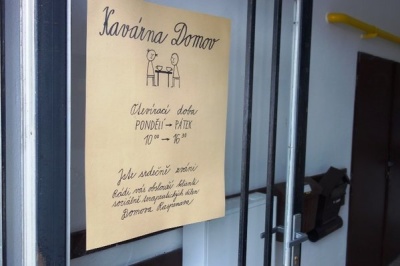 Kavárna Domov
Otevírací doba
PONDĚLÍ → PÁTEK
10⁰⁰ → 16³⁰
Jste srdečně zváni
Rádi vás obslouží klienti
sociálně terapeutických dílen
Domova Kaspianova